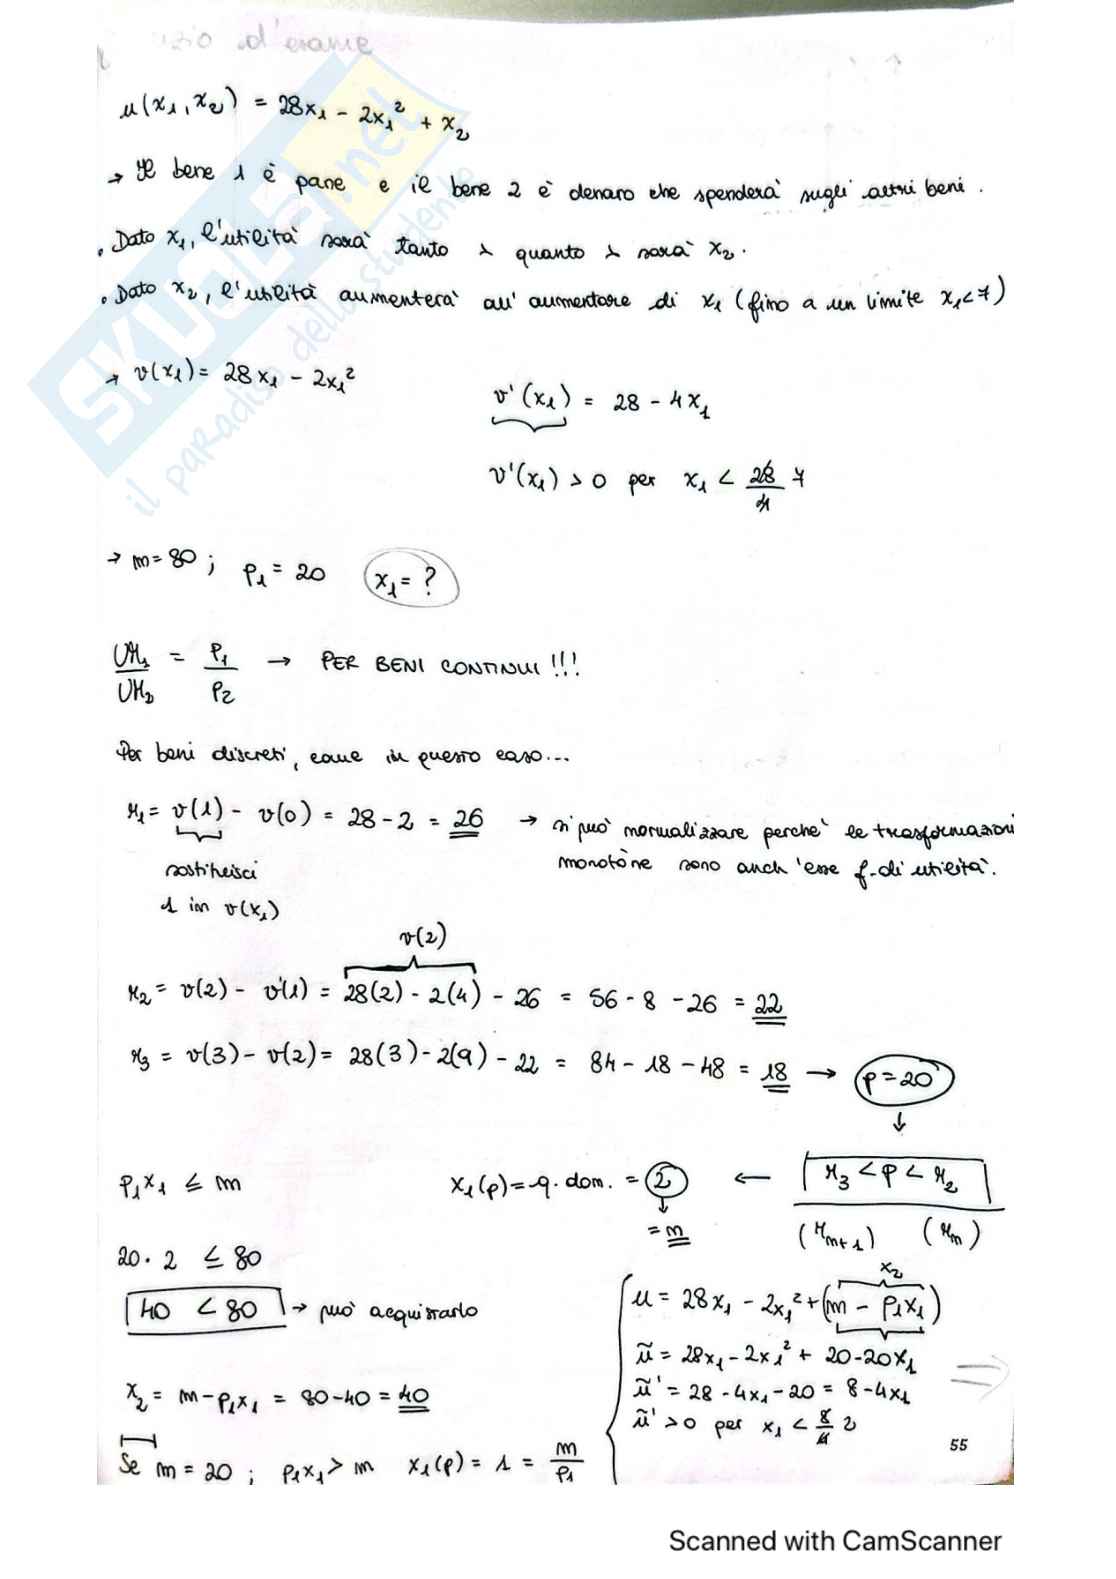 d'esame
u(x₁,x₂) = 28x₁ - 2x₁² + x₂
→ Il bene 1 è pane e il bene 2 è denaro che spenderà sugli altri beni.
• Dato x₁, l'utilità sarà tanto > quanto > sarà x₂.
• Dato x₂, l'utilità aumenterà all'aumentare di x₁ (fino a un limite x₁<7)
→ v(x₁) = 28x₁ - 2x₁²
v'(x₁) = 28 - 4x₁
v'(x₁) > 0 per x₁ < 28/4 7
→ m=80 ; p₁ = 20 x₁ = ?
UM₁/UM₂ = P₁/P₂ → PER BENI CONTINUI !!!
Per beni discreti, come in questo caso...
r₁ = v(1) - v(0) = 28 - 2 = 26 → si può normalizzare perché le trasformazioni
monotòne sono anch'esse f. di utilità.
sostituisci
1 in v(x₁)
v(2)
r₂ = v(2) - v(1) = 28(2) - 2(4) - 26 = 56 - 8 - 26 = 22
r₃ = v(3) - v(2) = 28(3) - 2(9) - 22 = 84 - 18 - 48 = 18 → p=20
p₁x₁ ≤ m
x₁(p) = q. dom. = 2 ← r₃ < p < r₂
= n
(rₙ₊₁) (rₙ)
20 · 2 ≤ 80
40 < 80 → può acquistarlo
x₂ = m - p₁x₁ = 80 - 40 = 40
Se m = 20 ; p₁x₁ > m x₁(p) = 1 = m/p₁
x₂
u = 28x₁ - 2x₁² + (m - p₁x₁)
ũ = 28x₁ - 2x₁² + 20 - 20x₁
ũ' = 28 - 4x₁ - 20 = 8 - 4x₁
ũ' > 0 per x₁ < 8/4 2
55
SKUOLA.net
il paradiso dello studente
Scanned with CamScanner